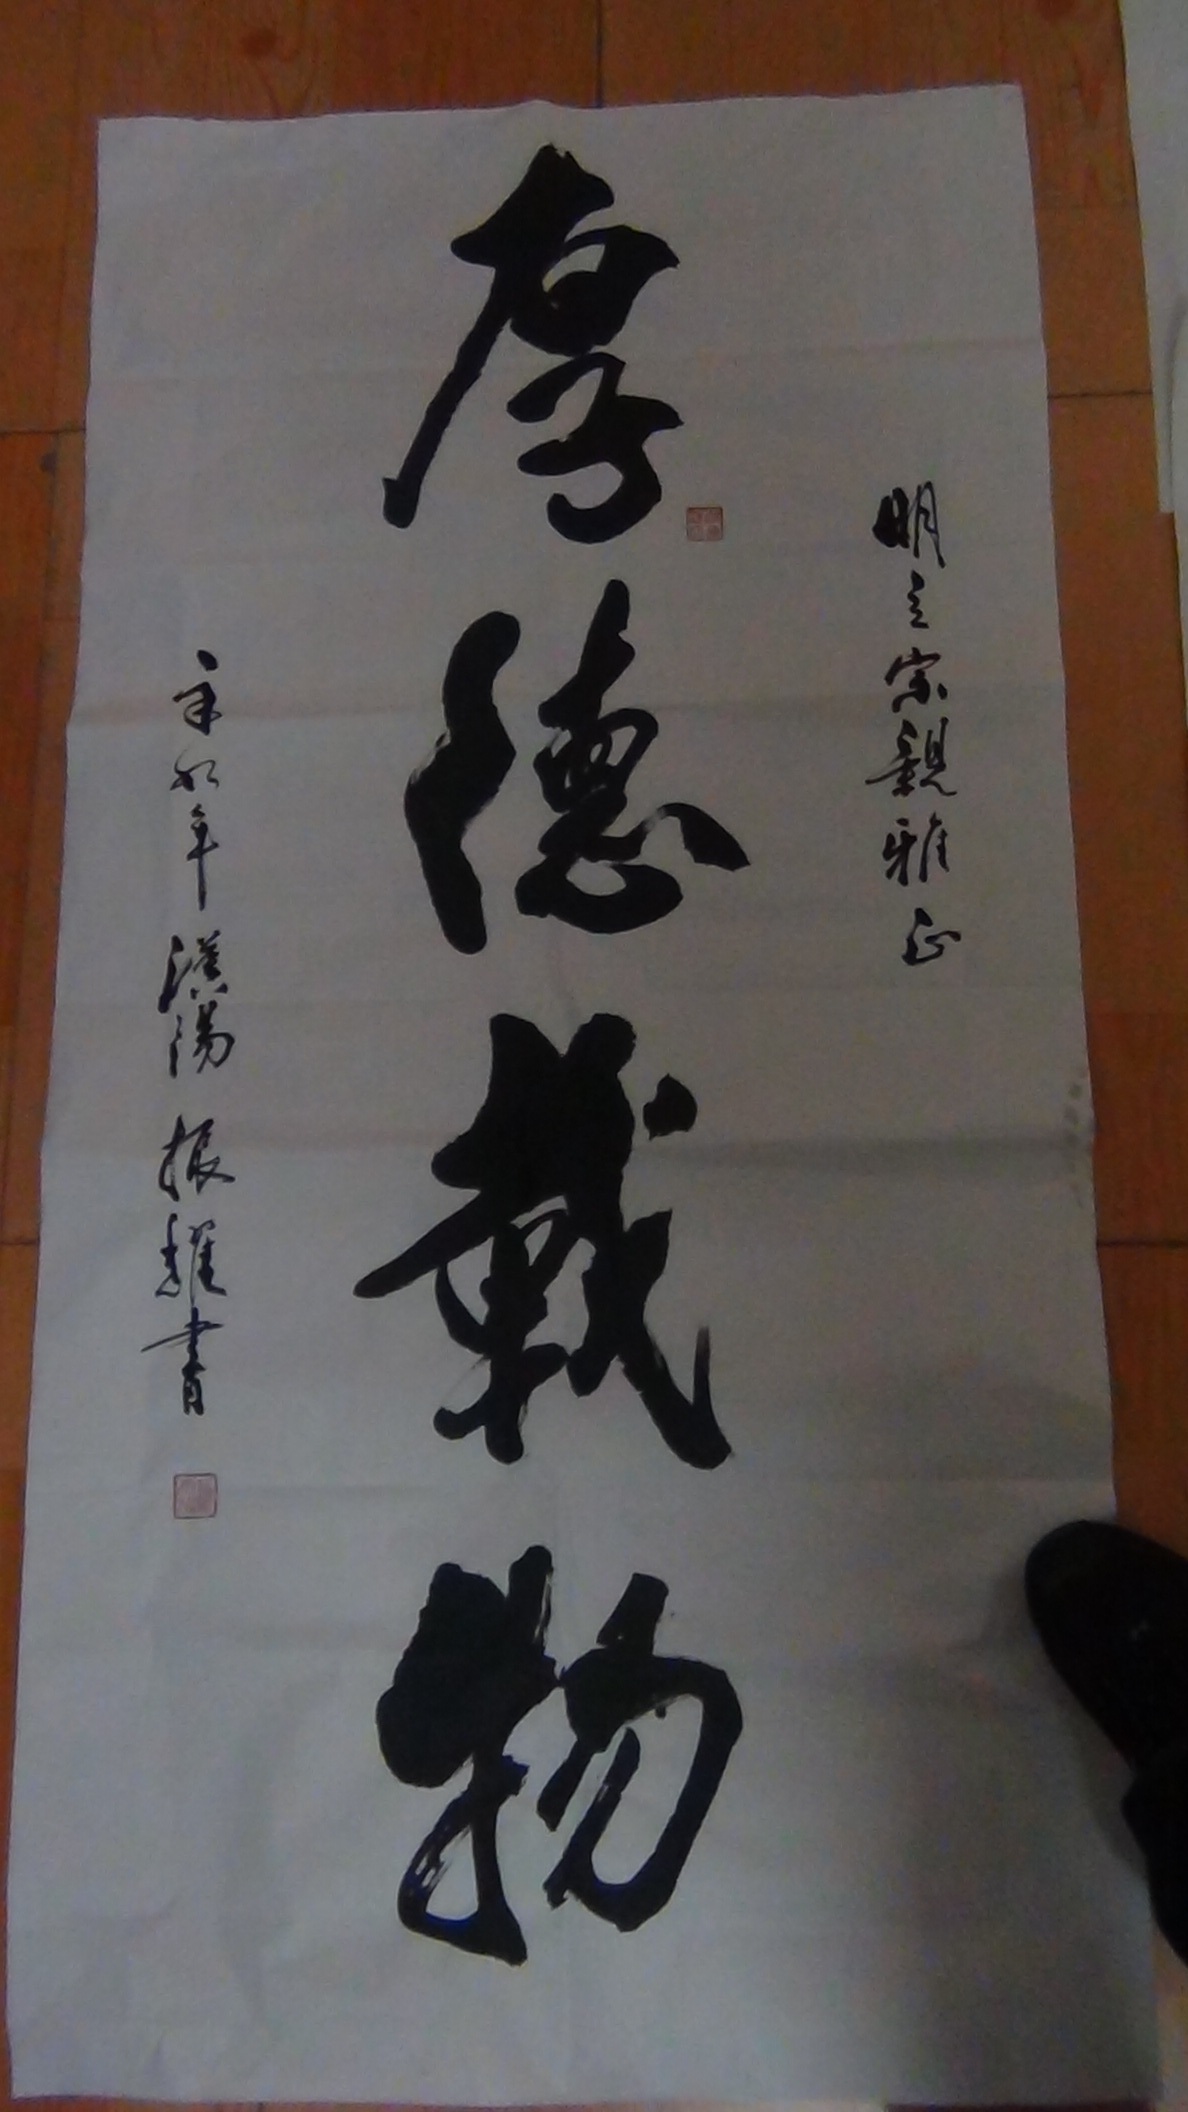 明立宗親雅正
厚德載物
辛卯年漢陽振耀書